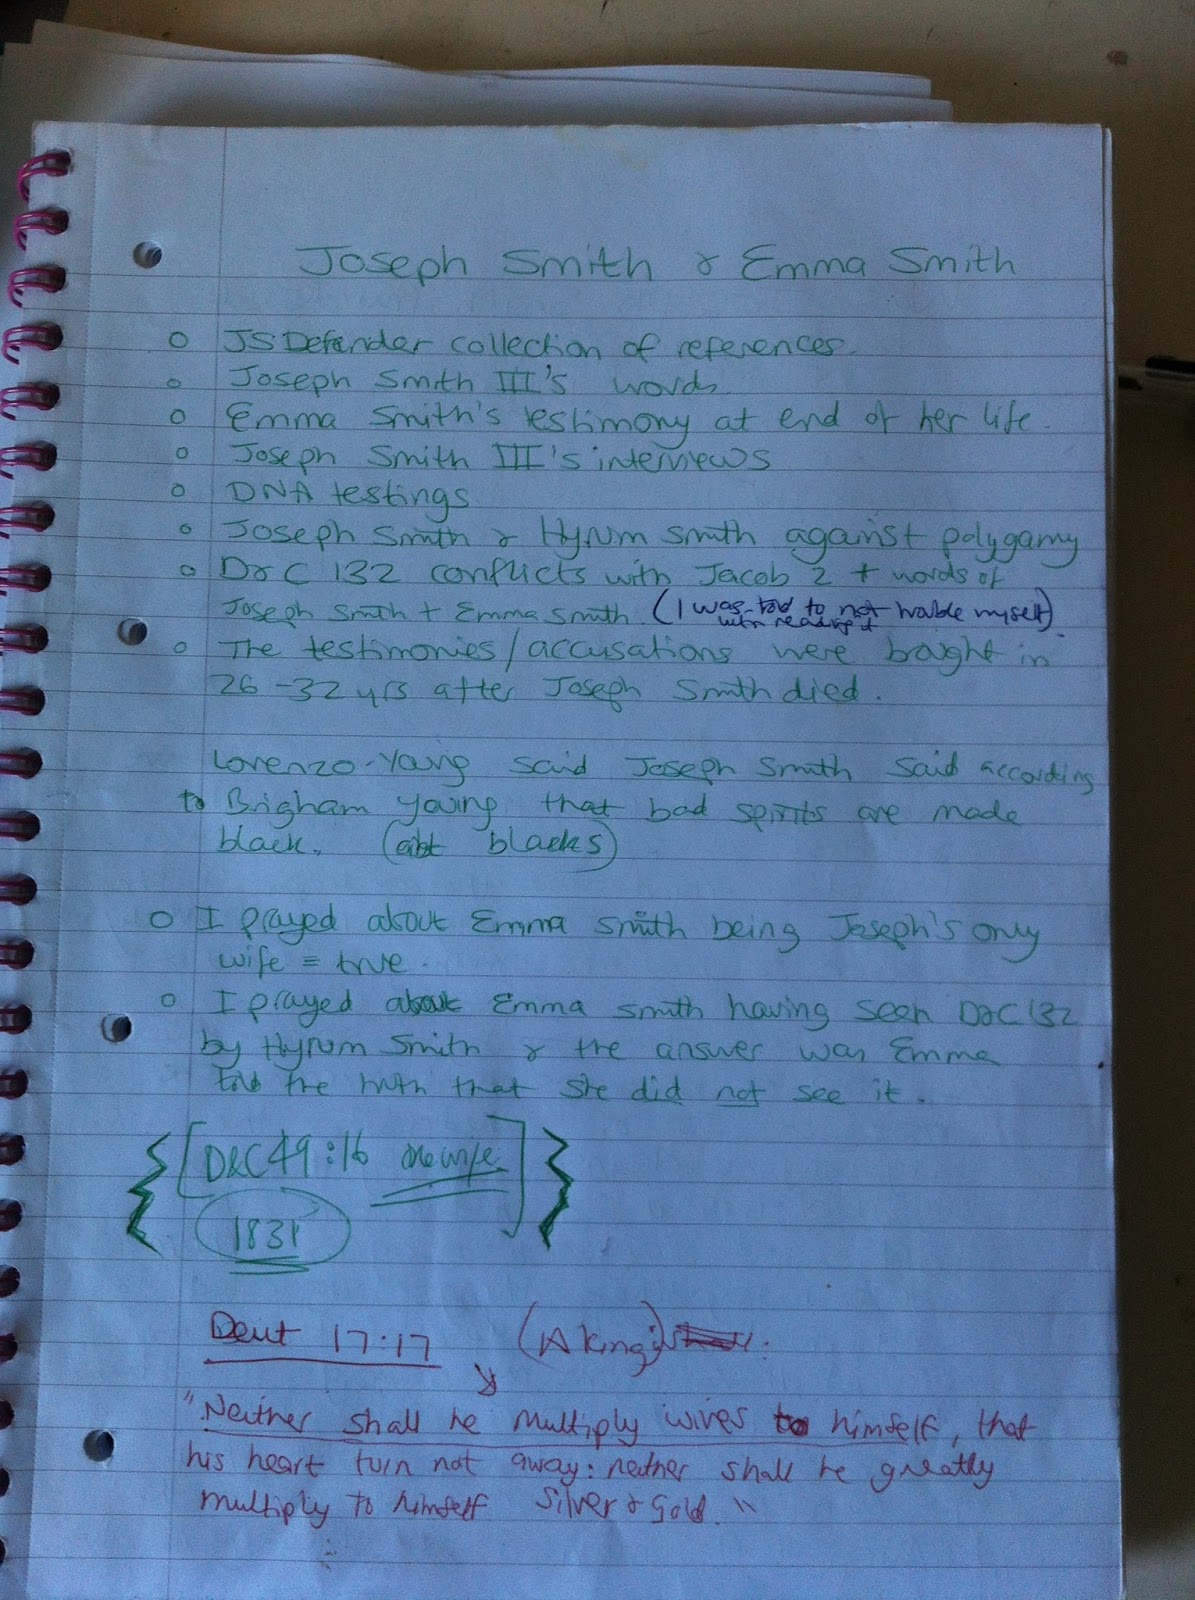 Joseph Smith & Emma Smith
o JS Defender collection of references.
o Joseph Smith III's words
o Emma Smith's testimony at end of her life.
o Joseph Smith III's interviews
o DNA testings
o Joseph Smith & Hyrum Smith against polygamy
o D&C 132 conflicts with Jacob 2 + words of
Joseph Smith + Emma Smith. (I was told to not trouble myself)
with reading it
o The testimonies/accusations were bought in
26-32 yrs after Joseph Smith died.
Lorenzo-Young said Joseph Smith said according
to Brigham Young that bad spirits are made
black. (abt blacks)
o I prayed about Emma Smith being Joseph's only
wife = true.
o I prayed about Emma Smith having seen D&C 132
by Hyrum Smith & the answer was Emma
told the truth that she did not see it.
[D&C 49:16 one wife]
1831
Deut 17:17 (A king)
"Neither shall he multiply wives to himself, that
his heart turn not away: neither shall he greatly
multiply to himself silver & gold."